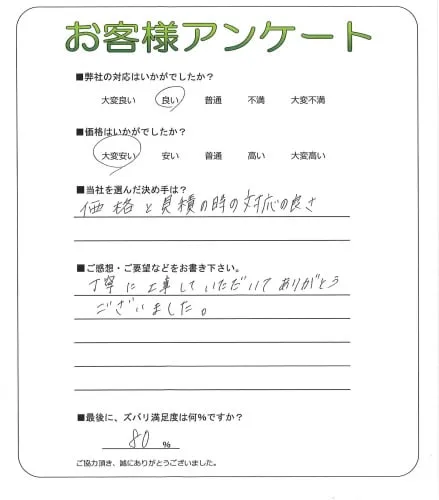 お客様アンケート
■弊社の対応はいかがでしたか?
大変良い 良い 普通 不満 大変不満
■価格はいかがでしたか?
大変安い 安い 普通 高い 大変高い
■当社を選んだ決め手は?
価格と見積の時の対応の良さ
■ご感想・ご要望などをお書き下さい。
丁寧に工事していただいてありがとう
ございました。
■最後に、ズバリ満足度は何%ですか?
80 %
ご協力頂き、誠にありがとうございました。